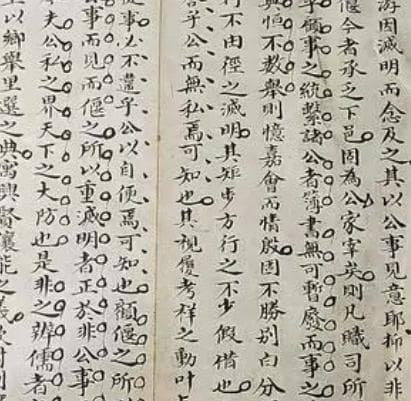 游因滅明而念及之其以公事見意耶抑以非
偃今者承乏下邑固為公家宰矣則凡職司所
領事之統繫諸公者簿書無可暫廢而事之
興恒不數舉則憶嘉會而情殷因不勝別白分
行不由徑之滅明其矩步方行之不少假借也
乎公而無私焉可知也其視履考祥之動叶
從事必不違乎公以自便焉可知也顧偃之所
公事而見而偃之所以重滅明者正於非公事
夫公私之界天下之大防也是非之辨儒者
以鄉舉里選之典寓興賢讓能之義